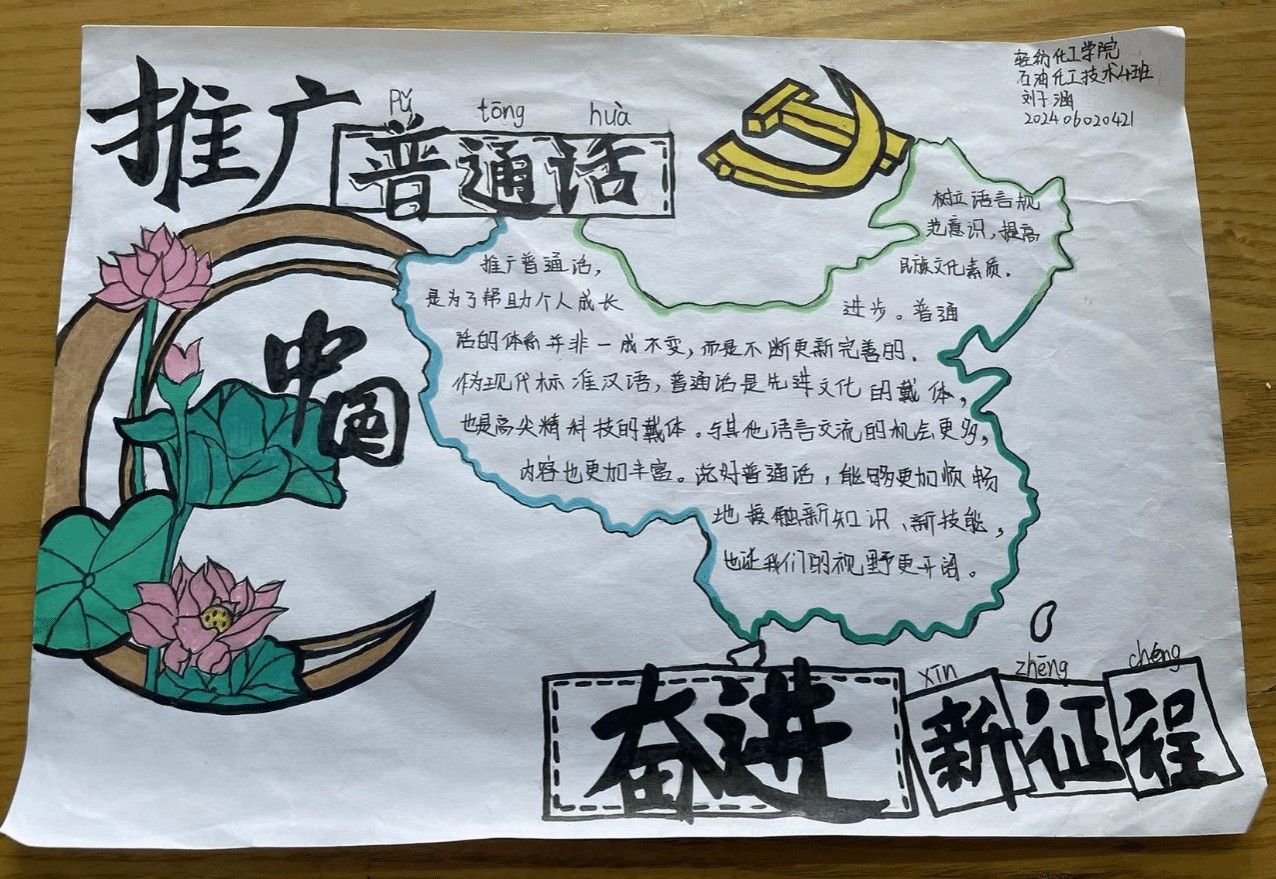 推广普通话
pǔ tōng huà
轻纺化工学院
石油化工技术4班
刘子涵
202406020421
树立语言规
范意识,提高
民族文化素质。
中国
推广普通话,
是为了帮助个人成长
进步。普通
话的体系并非一成不变,而是不断更新完善的。
作为现代标准汉语,普通话是先进文化的载体,
也是高尖精科技的载体。与其他语言交流的机会更多,
内容也更加丰富。说好普通话,能够更加顺畅
地接触新知识、新技能,
也让我们的视野更开阔。
xīn zhēng chéng
奋进新征程